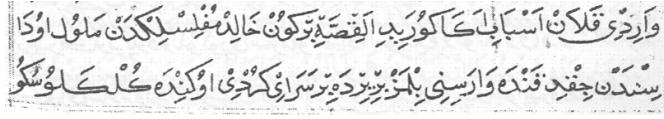 واردى قلان اسبابى اكا كوريد القصّه بركون خالده مفلسلكدن ملول اودا
سندن چقد قنده وارسنى بلمز بر يرده بر سراى كردى اوكنده كللكلو سكو